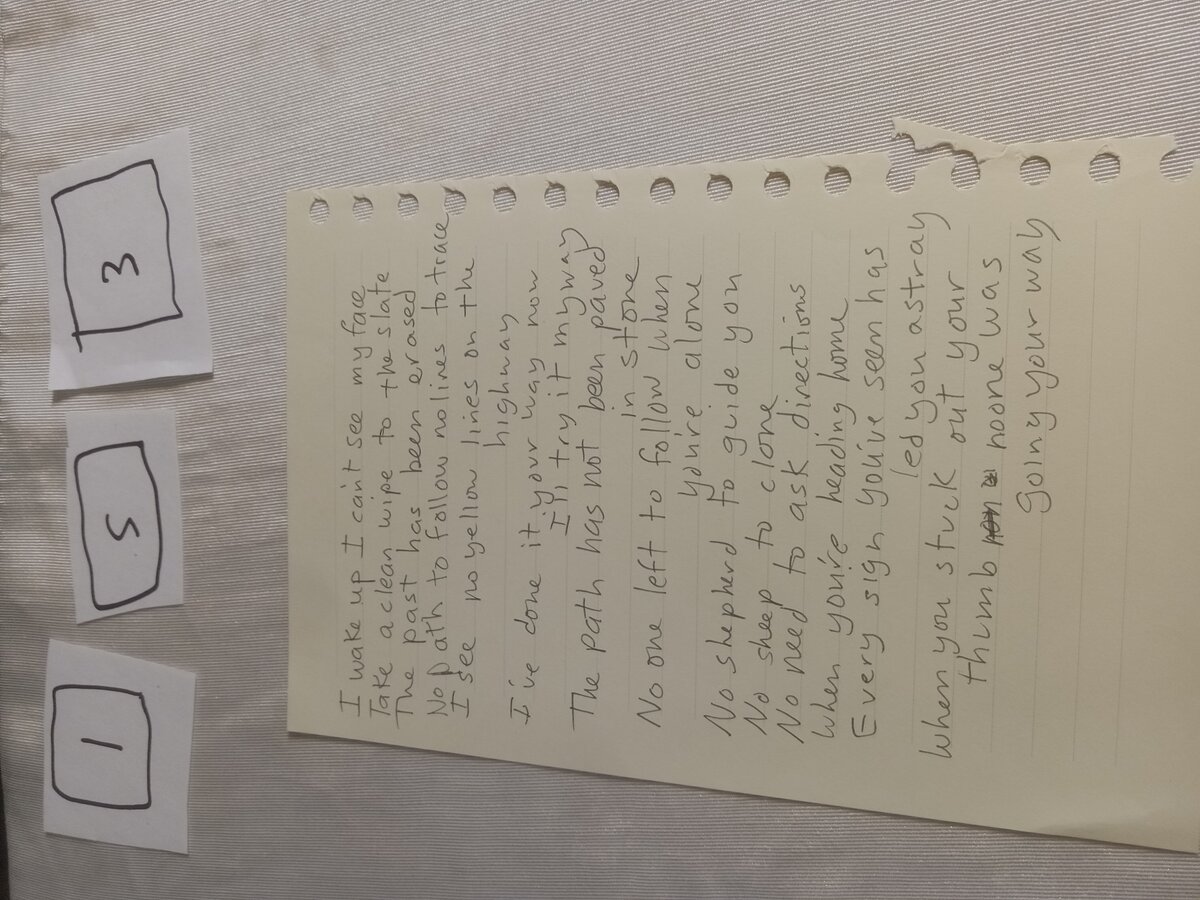 1
5
3
I wake up I can't see my face
Take a clean wipe to the slate
The past has been erased
No path to follow no lines to trace
I see no yellow lines on the
highway
I've done it your way now
I'll try it my way
The path has not been paved
in stone
No one left to follow when
you're alone
No shepherd to guide you
No sheep to clone
No need to ask directions
when you're heading home
Every sign you've seen has
led you astray
When you stuck out your
thumb noone was
going your way